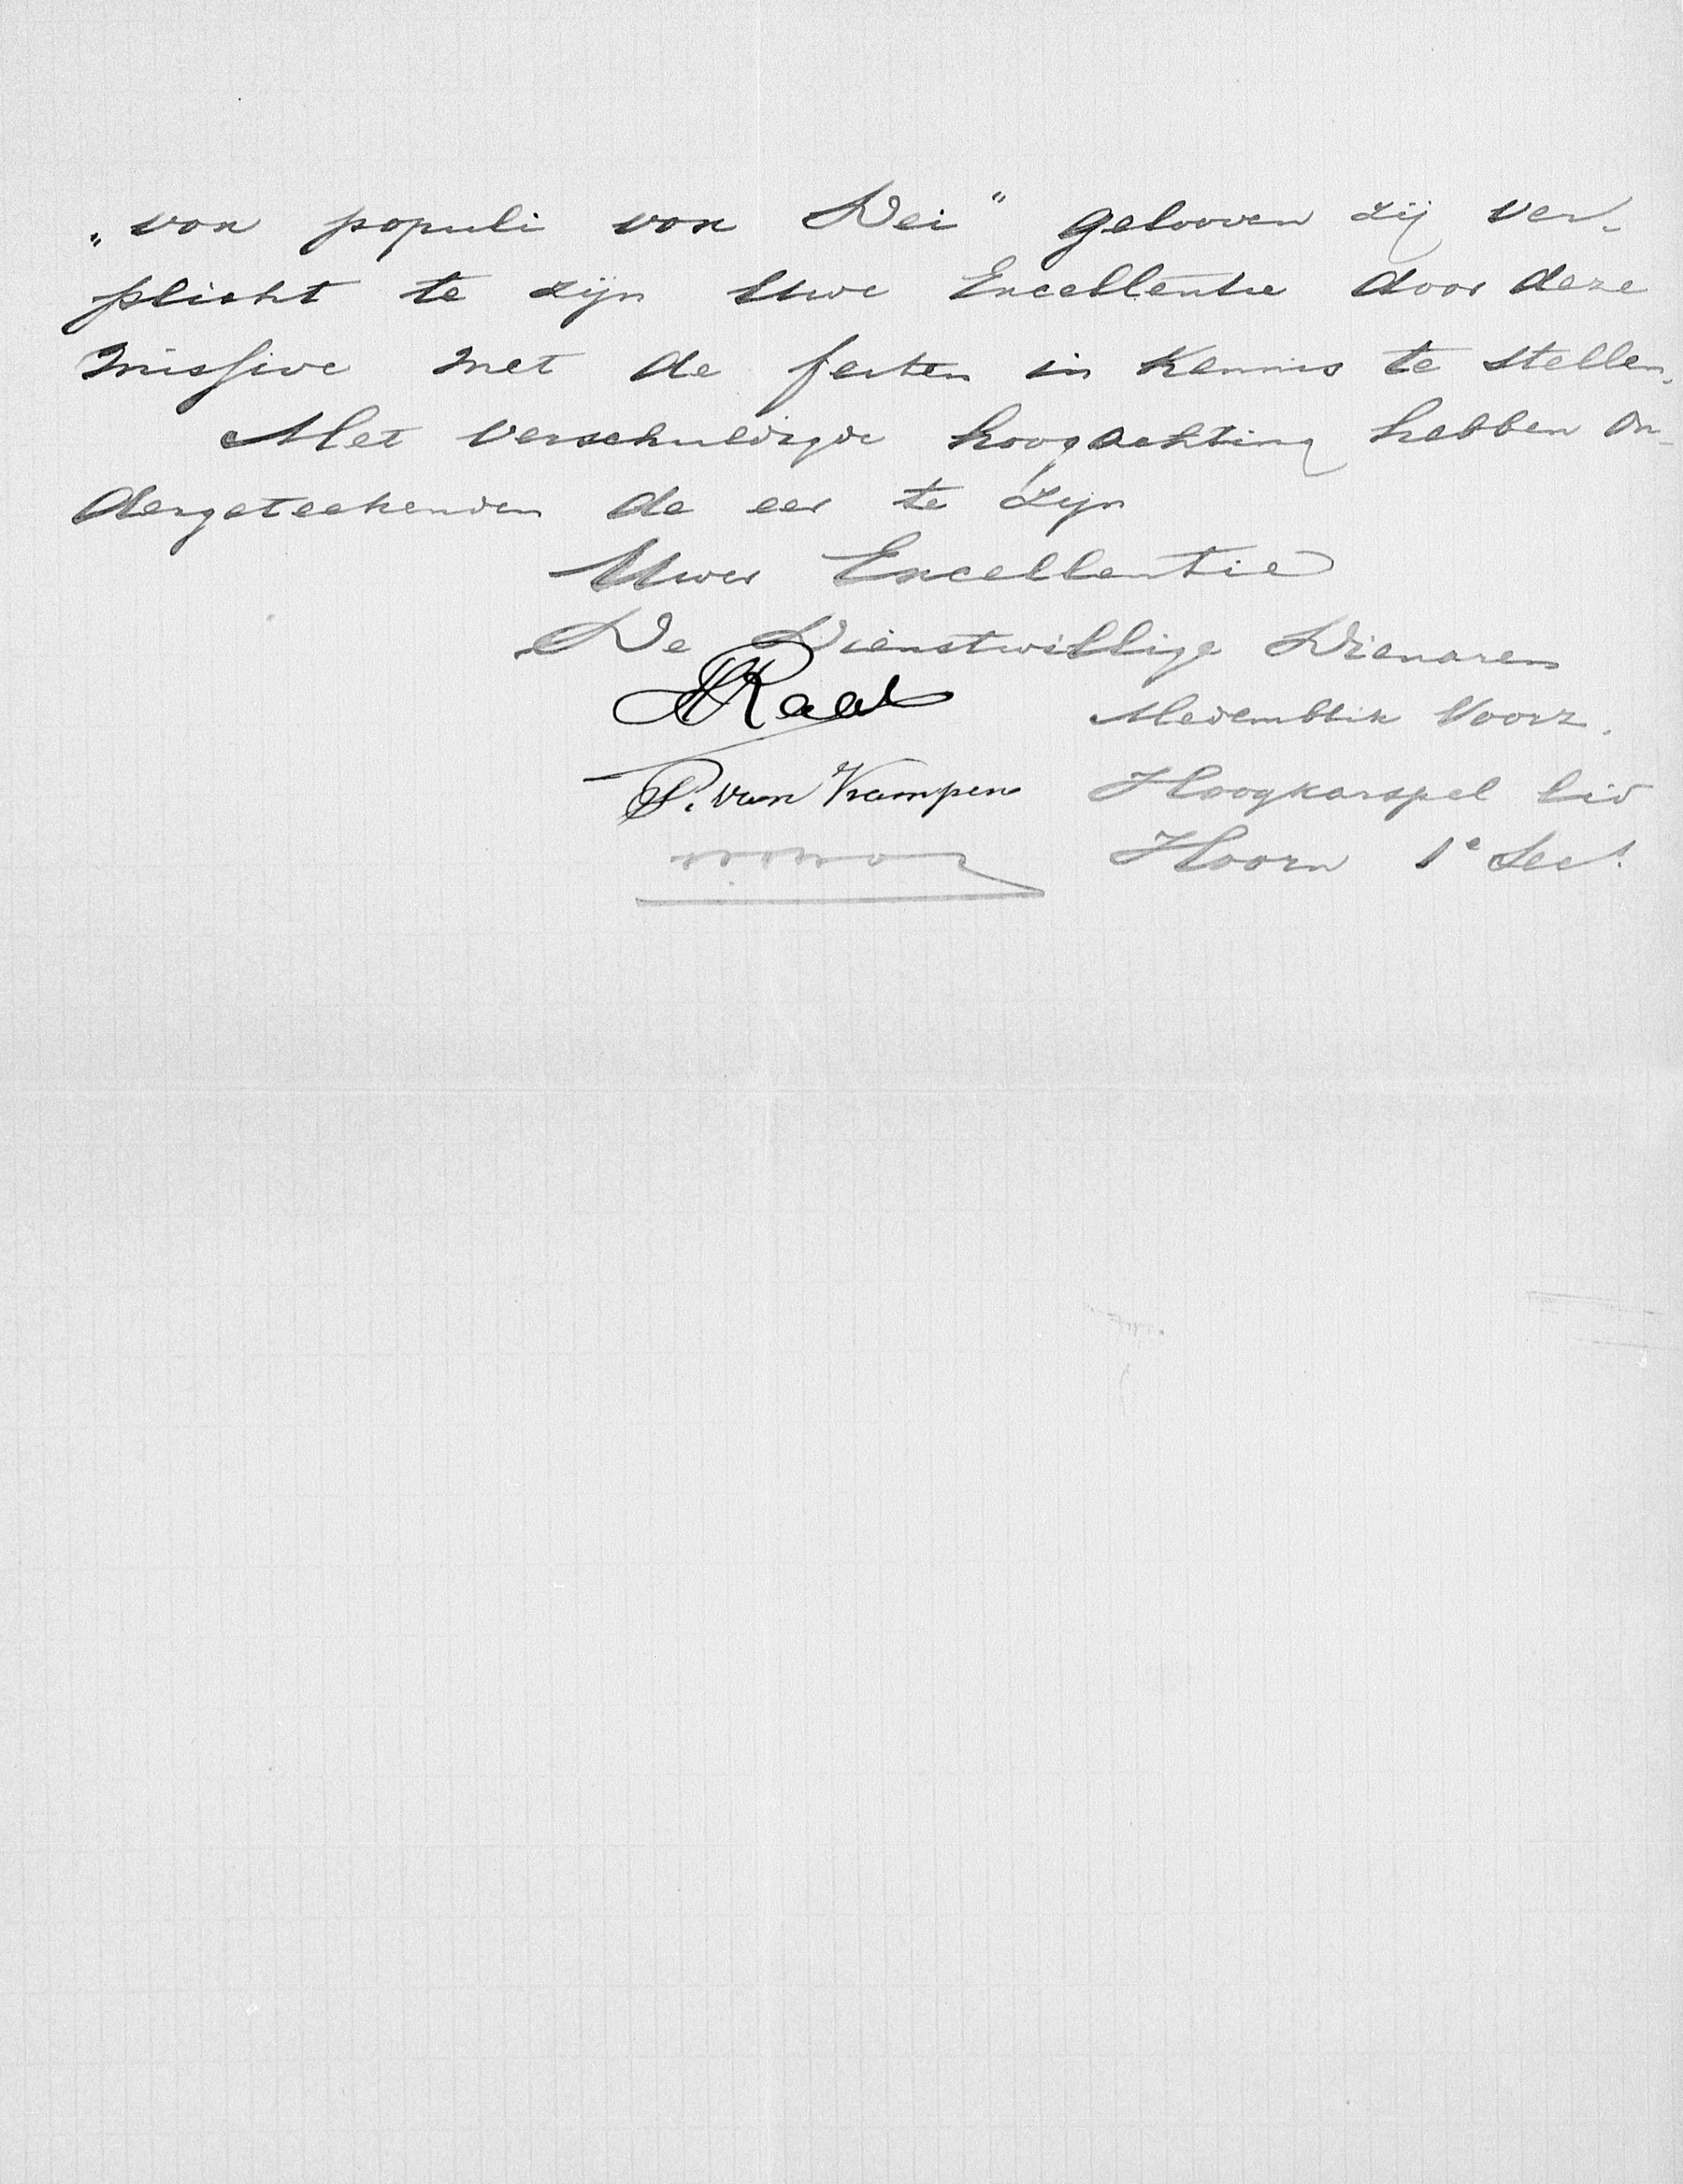 „vox populi vox Dei" gelooven zij ver-
plicht te zijn Uwe Excellentie door deze
missive met de feiten in kennis te stellen.
Met verschuldigde hoogachting hebben on-
dergeteekenden de eer te zijn
Uwer Excellentie
De Dienstwillige Dienaren
Raat Medemblik Voorz.
P. van Kampen Hoogkarspel lid
Hoorn 1e Secr.